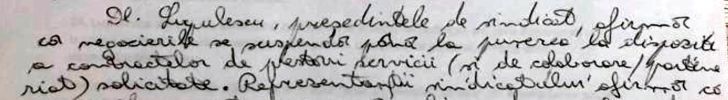 Dl. Ligulescu, președintele de sindicat, afirmă
că negocierile se suspendă până la punerea la dispoziție
a contractelor de prestări servicii (și de colaborare/partene
riat) solicitate. Reprezentanții sindicatului afirmă că